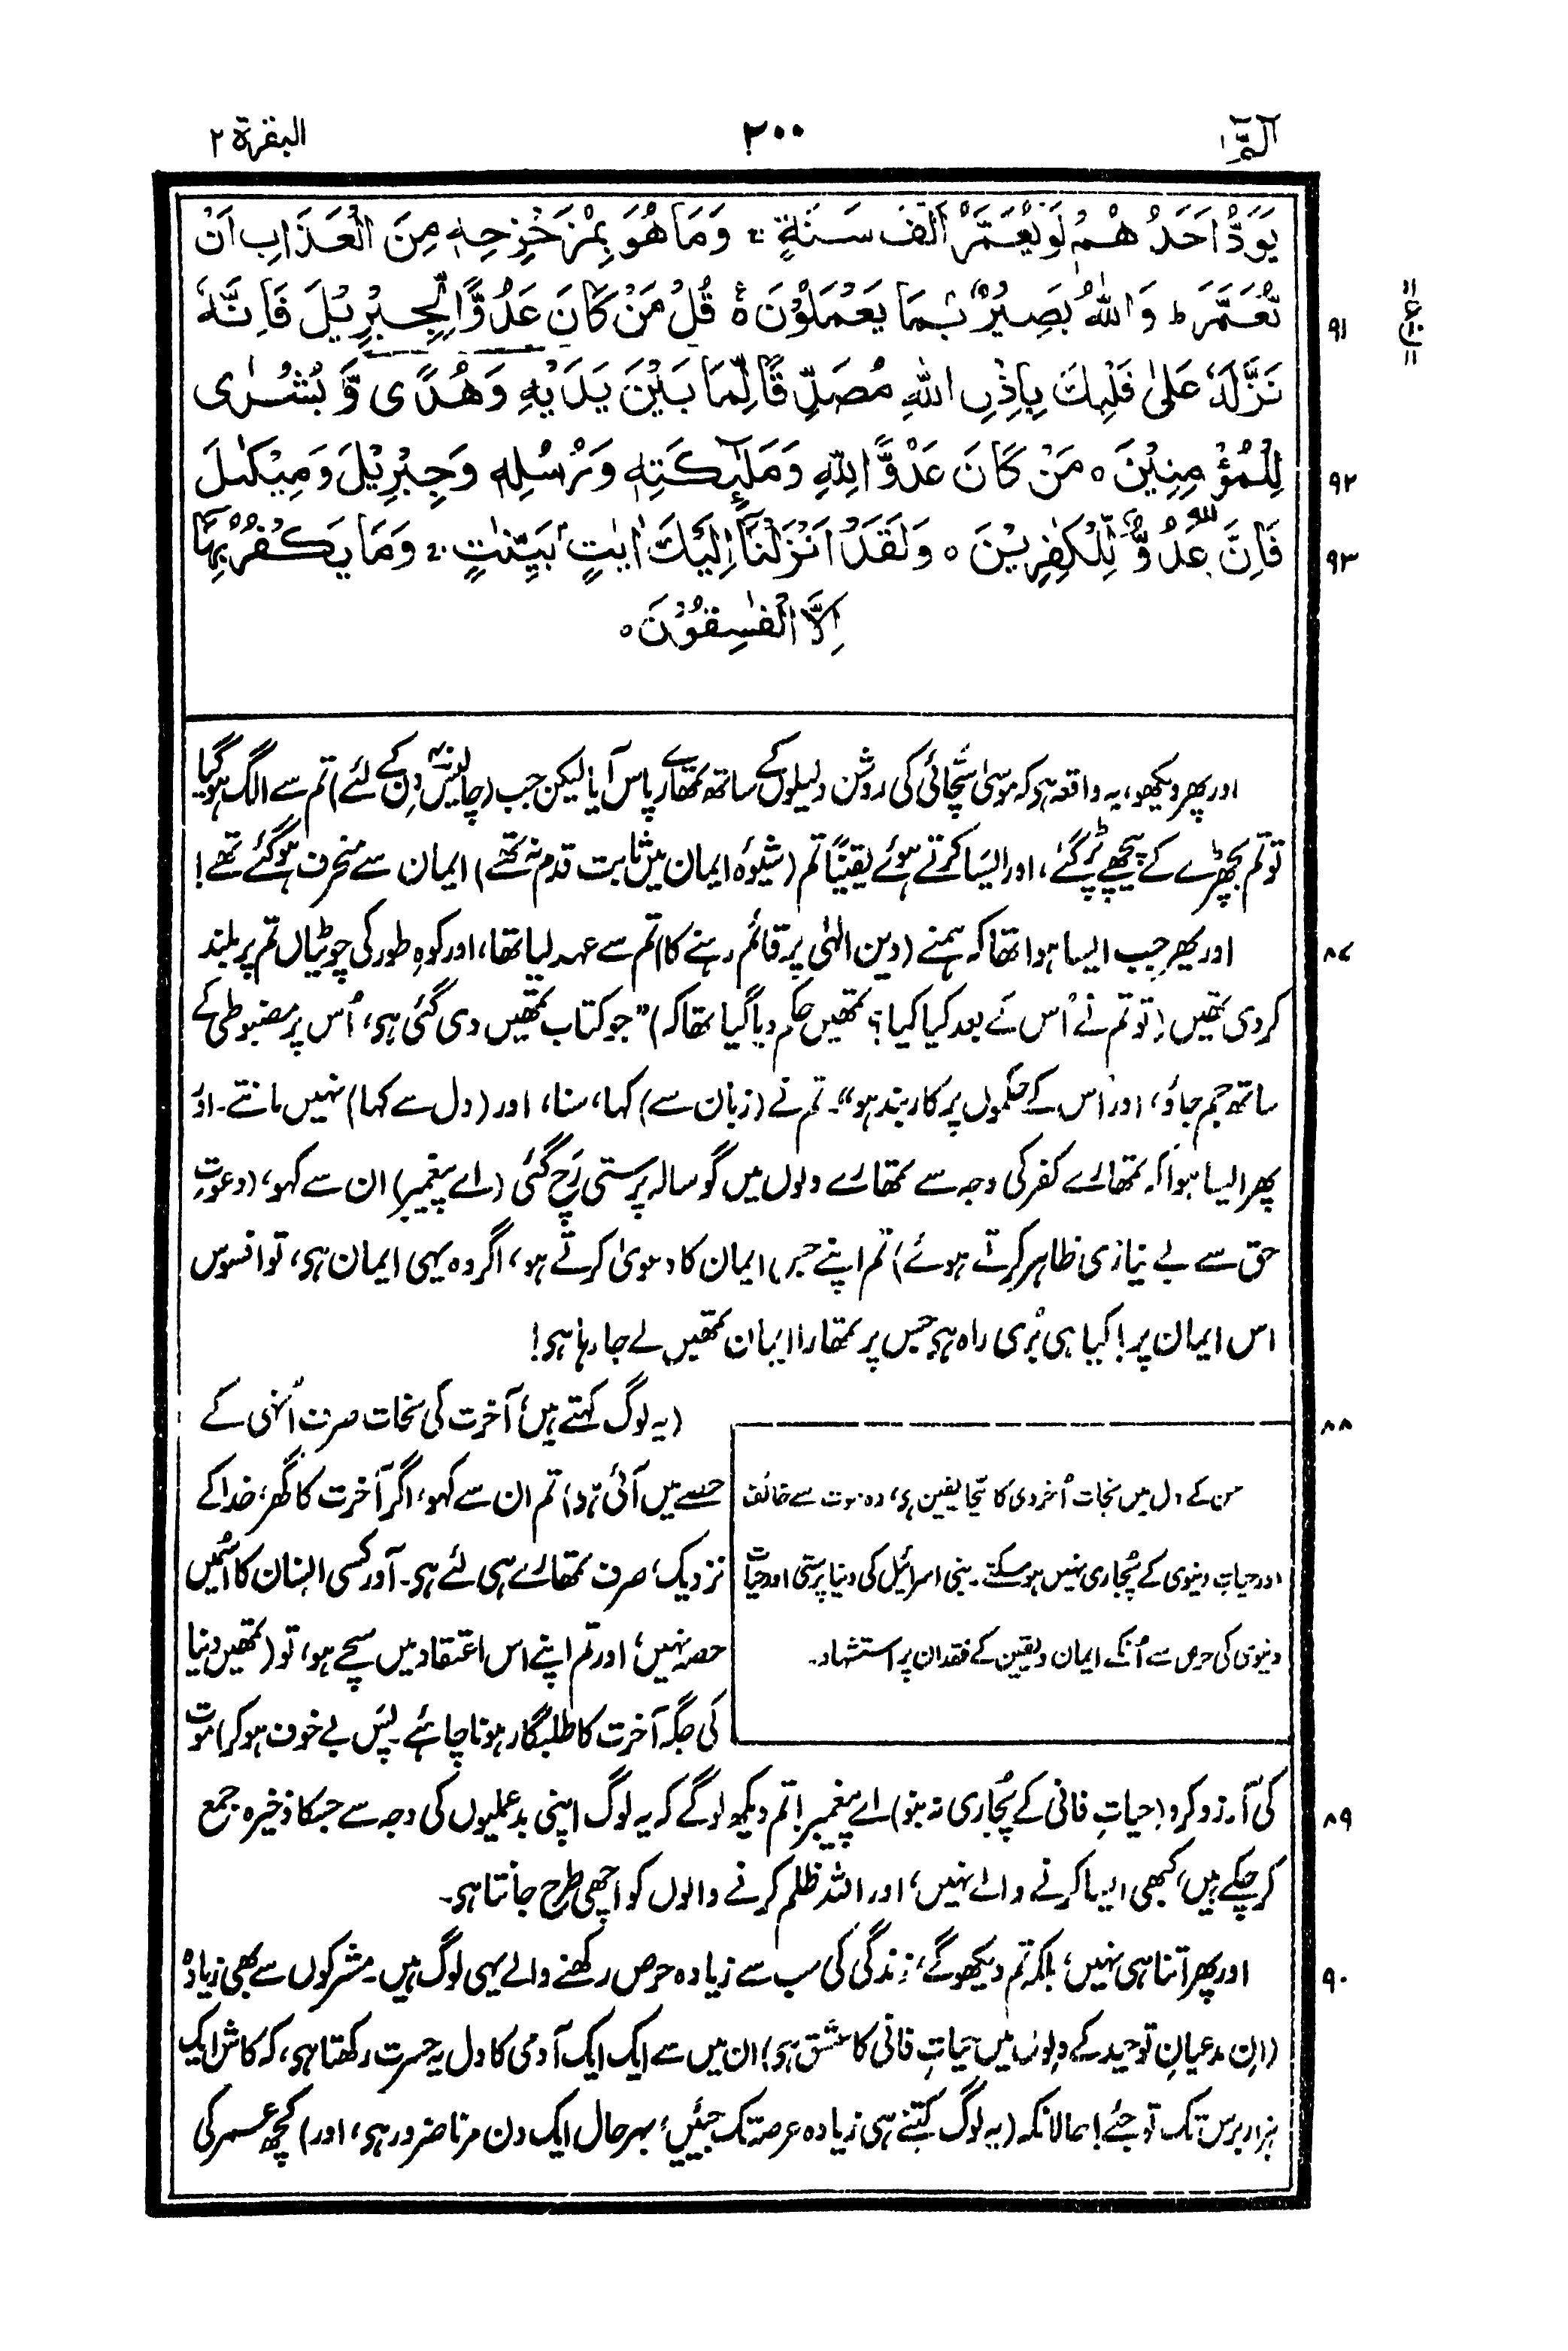 الٓمّٓ ۱
۲۰۰
البقرة ۲
يَوَدُّ اَحَدُهُمْ لَوْ يُعَمَّرُ اَلْفَ سَنَةٍ ۚ وَمَا هُوَ بِمُزَحْزِحِهٖ مِنَ الْعَذَابِ اَنْ
۹۱ يُّعَمَّرَ ؕ وَاللّٰهُ بَصِيْرٌۢ بِمَا يَعْمَلُوْنَ ۝ قُلْ مَنْ كَانَ عَدُوًّا لِّجِبْرِيْلَ فَاِنَّهٗ
نَزَّلَهٗ عَلٰى قَلْبِكَ بِاِذْنِ اللّٰهِ مُصَدِّقًا لِّمَا بَيْنَ يَدَيْهِ وَهُدًى وَّ بُشْرٰى
۹۲ لِلْمُؤْمِنِيْنَ ۝ مَنْ كَانَ عَدُوًّا لِّلّٰهِ وَمَلٰٓئِكَتِهٖ وَرُسُلِهٖ وَجِبْرِيْلَ وَمِيْكٰىلَ
۹۳ فَاِنَّ اللّٰهَ عَدُوٌّ لِّلْكٰفِرِيْنَ ۝ وَلَقَدْ اَنْزَلْنَآ اِلَيْكَ اٰيٰتٍۭ بَيِّنٰتٍ ۚ وَمَا يَكْفُرُ بِهَآ
اِلَّا الْفٰسِقُوْنَ ۝
اور پھر دیکھو، یہ واقعہ ہی کہ موسیٰ سچّائی کی روشن دلیلوں کے ساتھ تمھارے پاس آیا لیکن جب (چالیس دن کے لئے) تم سے الگ ہو گیا
تو تم بچھڑے کے پیچھے پڑ گئے، اور ایسا کرتے ہوئے یقیناً تم (شیوۂ ایمان میں ثابت قدم نہ تھے) ایمان سے منحرف ہو گئے تھے!
۸۷ اور پھر جب ایسا ہوا تھا کہ ہمنے (دین الٰہی پر قائم رہنے کا) تم سے عہد لیا تھا، اور کوہِ طور کی چوٹیاں تم پر بلند
کر دی تھیں (تو تم نے اُس کے بعد کیا کیا؟ تمھیں حکم دیا گیا تھا کہ) "جو کتاب تمھیں دی گئی ہی، اُس پر مضبوطی کے
ساتھ جم جاؤ، اور اس کے حکموں پر کاربند ہو"۔ تم نے (زبان سے) کہا، سنا، اور (دل سے کہا) نہیں مانتے۔ اور
پھر ایسا ہوا کہ تمھارے کفر کی وجہ سے تمھارے دلوں میں گوسالہ پرستی رَچ گئی (اے پیغمبر) ان سے کہو، (دعوتِ
حق سے بے نیازی ظاہر کرتے ہوئے) تم اپنے جس ایمان کا دعویٰ کرتے ہو، اگر وہ یہی ایمان ہی، تو افسوس
اس ایمان پر! کیا ہی بُری راہ ہی جس پر تمھارا ایمان تمھیں لے جا رہا ہی!
۸۸ (یہ لوگ کہتے ہیں، آخرت کی نجات صرف اُنہی کے
حصے میں آئی ہی) تم ان سے کہو، اگر آخرت کا گھر، خدا کے
نزدیک، صرف تمھارے ہی لئے ہی۔ اور کسی انسان کا اسمیں
حصہ نہیں، اور تم اپنے اس اعتقاد میں سچے ہو، تو (تمھیں دنیا
کی جگہ آخرت کا طلبگار ہونا چاہئے۔ پس بے خوف ہو کر) موت
جن کے دل میں نجات اُخروی کا سچّا یقین ہی، وہ موت سے خائف
اور حیاتِ دنیوی کے پُجاری نہیں ہو سکتے۔ بنی اسرائیل کی دنیا پرستی اور حیات
دنیوی کی حرص سے اُنکے ایمان و یقین کے فقدان پر استشہاد۔
۸۹ کی آرزو کرو (حیاتِ فانی کے پُجاری نہ بنو) اے پیغمبر! تم دیکھ لو گے کہ یہ لوگ اپنی بدعملیوں کی وجہ سے جسکا ذخیرہ جمع
کر چکے ہیں، کبھی ایسا کرنے والے نہیں، اور اللہ ظلم کرنے والوں کو اچھی طرح جانتا ہی۔
۹۰ اور پھر اتنا ہی نہیں، بلکہ تم دیکھو گے، زندگی کی سب سے زیادہ حرص رکھنے والے یہی لوگ ہیں۔ مشرکوں سے بھی زیادہ
(ان مدعیانِ توحید کے دلوں میں حیاتِ فانی کا عشق ہی) ان میں سے ایک ایک آدمی کا دل یہ حسرت رکھتا ہی، کہ کاش ایک
ہزار برس تک تو جئے! حالانکہ (یہ لوگ کتنے ہی زیادہ عرصہ تک جئیں، بہر حال ایک دن مرنا ضرور ہی، اور) کچھ عمر کی